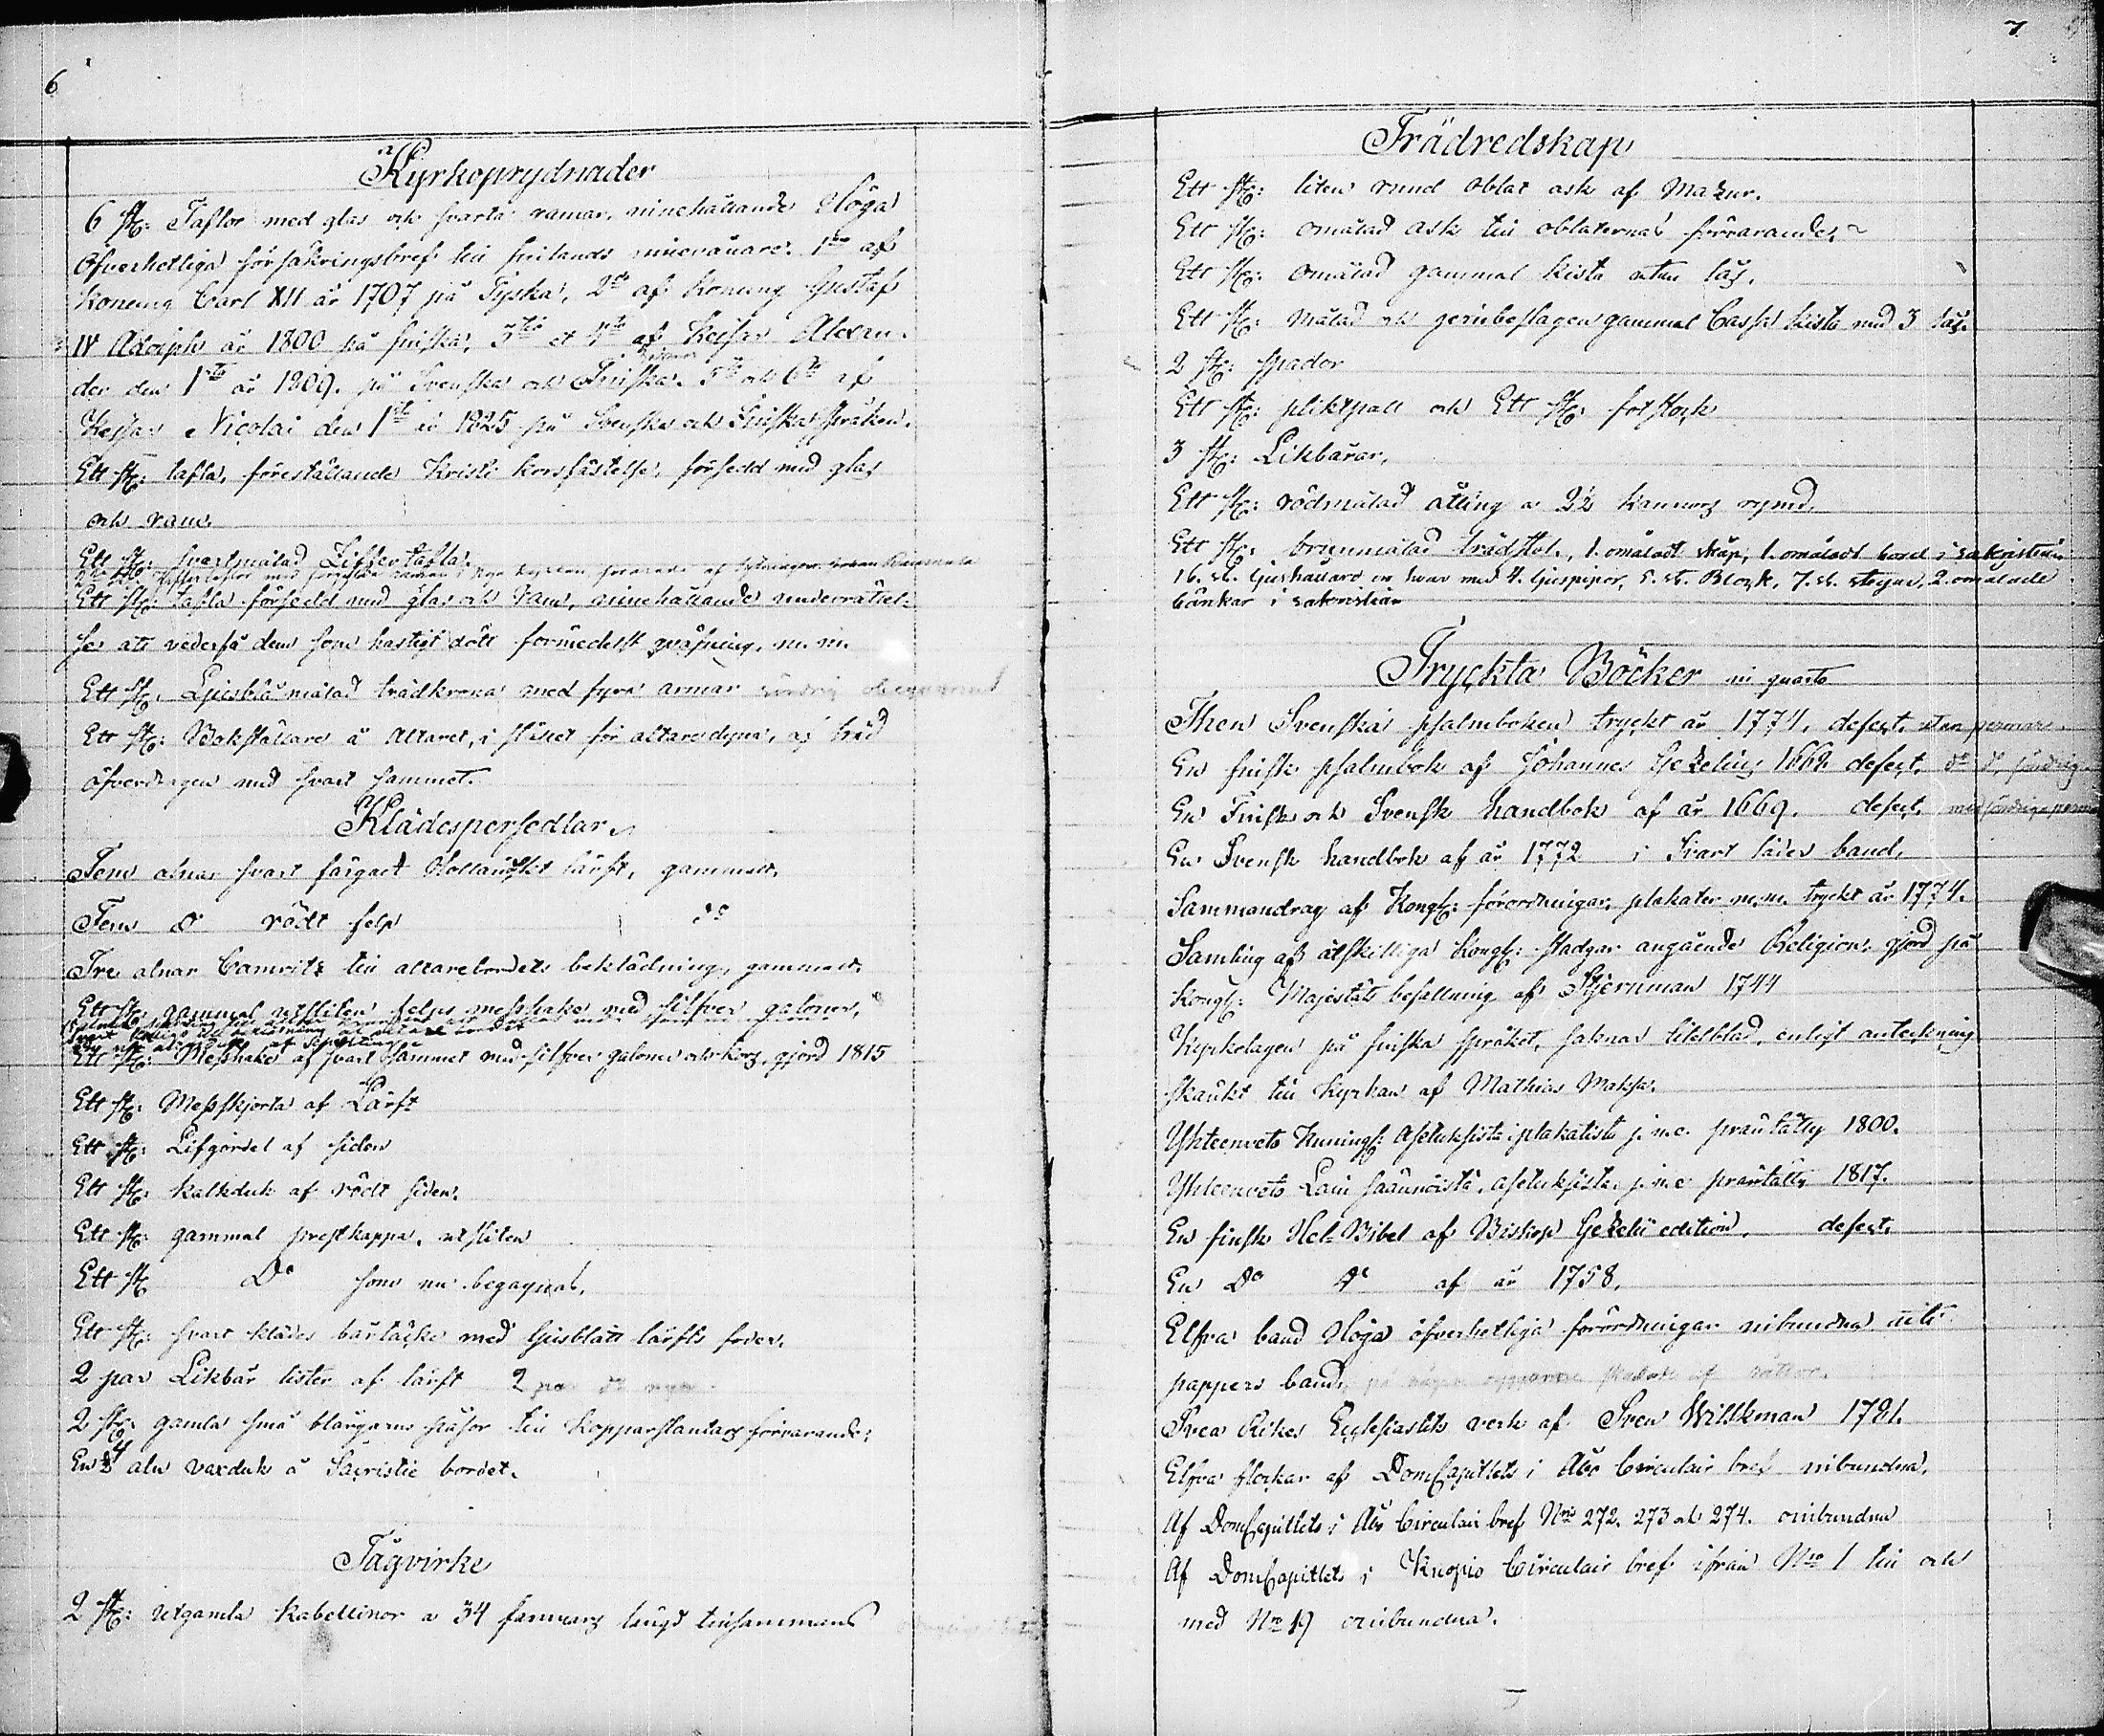 6
Kyrkoprydnader
6 st: Taflor med glas och svarta ramar, innehållande Höga
Öfverhetliga försäkringsbref till finlands innevånare. 1sta af
Konung Carl XII år 1707 på Tyska, 2dra af Konung Gustaf
IV Adolph år 1800 på finska, 3dje et 4de af Kejsar Alexan-
der den 1sta år 1809. på Svenska och Finska. 5te och 6te af
Kejsar Nicolai den 1sta år 1825 på Svenska och Finska språken.
Ett st: tafla, föreställande Kristi korsfästelse, försedd med glas
och ram.
Ett st: svartmålad Ziffertafla.
Ett st: tafla försedd med glas och ram, innehållande underrättel-
ser att rädda dem som hastigt dött förmedelst qväfning, m.m.
Ett st. Ljusblåmålad trädkrona med fyra armar söndrig
Ett st: Bokställare å Altaret, i stället för altaredyna, af träd
öfverdragen med svart sammet.
Klädespersedlar.
Fem alnar svart färgadt Holländskt lärft, gammalt.
Fem do rödt felp do
Tre alnar Camritz till altarebordets beklädning, gammalt.
Ett st: gammal utsliten felps messhake med silfver galoner,
Ett st: Messhake af svart sammet med silfver galoner och kors, gjord 1815
Ett st: Messskjorta af Lärft
Ett st: Lifgördel af siden
Ett st: kalkduk af rödt siden.
Ett st: gammal prestkappa, utsliten
Ett st Do som nu begagnas.
Ett st: svart klädes bårtäcke med ljusblått lärfts foder.
2 par Likbår lister af lärft 2 par do nya
2 st: gamla små blångarns påsar till Kopparslantars förvarande.
En 4 aln vaxduk å Sacristie bordet.
Tågvirke
2 st: utgamla kabellinor a 34 famnars längd tillsammans
7
Trädredskap
Ett st: liten rund oblat ask af Mazur.
Ett st: omålad ask till oblaternas förvarande.
Ett st: omålad gammal kista utan lås.
Ett st: målad och jernbeslagen gammal Cassa kista med 3 lås.
2 st: spador
Ett st: pliktpall och Ett st: fotstock
3 st: Likbårar.
Ett st: rödmålad åtting a 22 kannors rymd.
Ett st: brunmålad trädstol, 1. omåladt skåp, 1. omåladt bord i sakristian
16. st. ljushållare en hvar med 4. ljuspipor, 5. st. Block, 7. st. stegar, 2. omålade
bänkar i sakristian
Tryckta Böcker in quarto
Then Svenska psalmboken tryckt år 1774, defect. utan permar
En finsk psalmbok af Johannes Gezelius 1668 defect. do do söndrig
En Finsk och Svensk handbok af år 1669. defect. med söndriga permar
En Svensk handbok af år 1772 i Svart läder band.
Sammandrag af Kongl: förordningar, plakater m.m. tryckt år 1774.
Samling af åtskilliga Kongl: stadgar angående Religion, gjord på
Kongl: Majestäts befallning af Stjernman 1744
Kyrkolagen på finska språket, saknar titelblad, enligt anteckning
skänkt till Kyrkan af Mathias Maksa.
Yhteenveto Kuningl: Asetuksista i plakatista j.n.e. präntätty 1800.
Yhteenveto Lain säännöistä, asetuksista j.n.e. präntätty 1817.
En finsk Hel-Bibel af Biskop Gezelii edition. defect.
En Do do af år 1758.
Elfva band Höga öfverhetliga förordningar inbundna uti
pappers band,
Svea Rikes Ecclesiastik verk af Sven Wilskman 1781.
Elfva flockar af DomCapitlets i Åbo Circulair bref inbundna.
Af DomCapitlets i Åbo Circulair bref Nris 272. 273 och 274. oinbundna
Af DomCapitlets i Kuopio Circulair bref ifrån Nro 1 till och
med Nro 19 oinbundna.